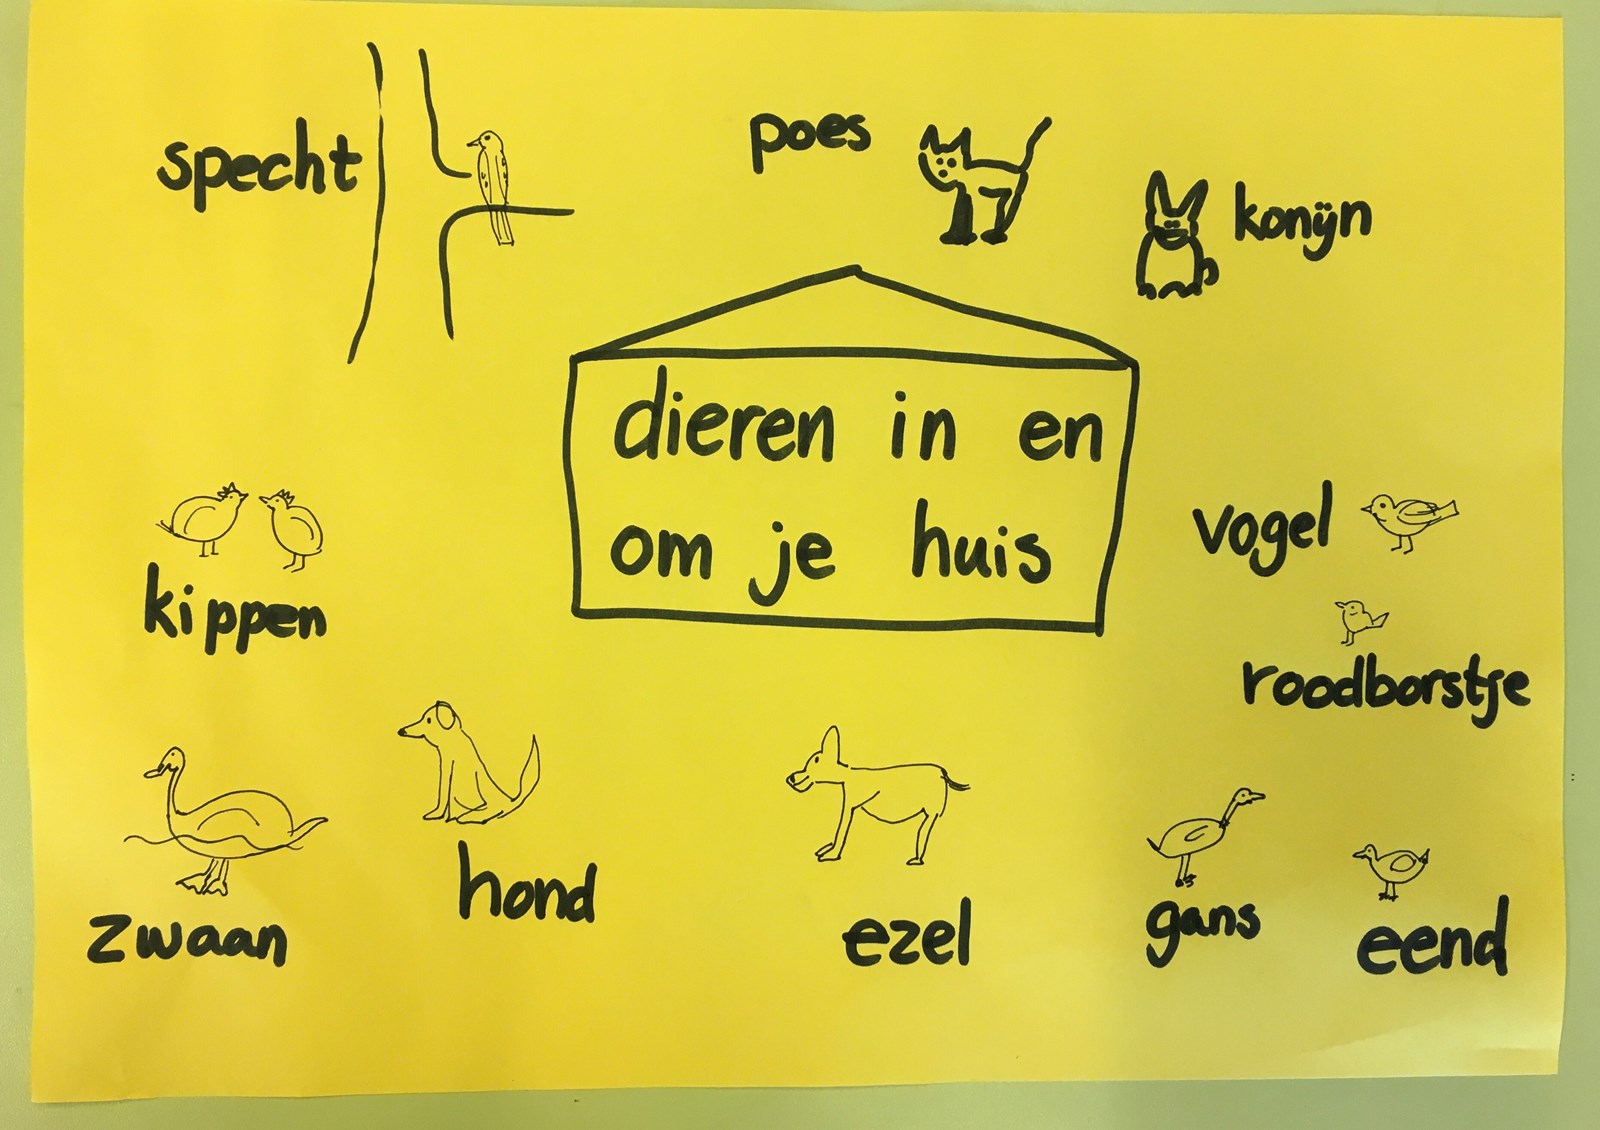 specht
poes
konijn
dieren in en
om je huis
kippen
vogel
roodborstje
zwaan
hond
ezel
gans
eend